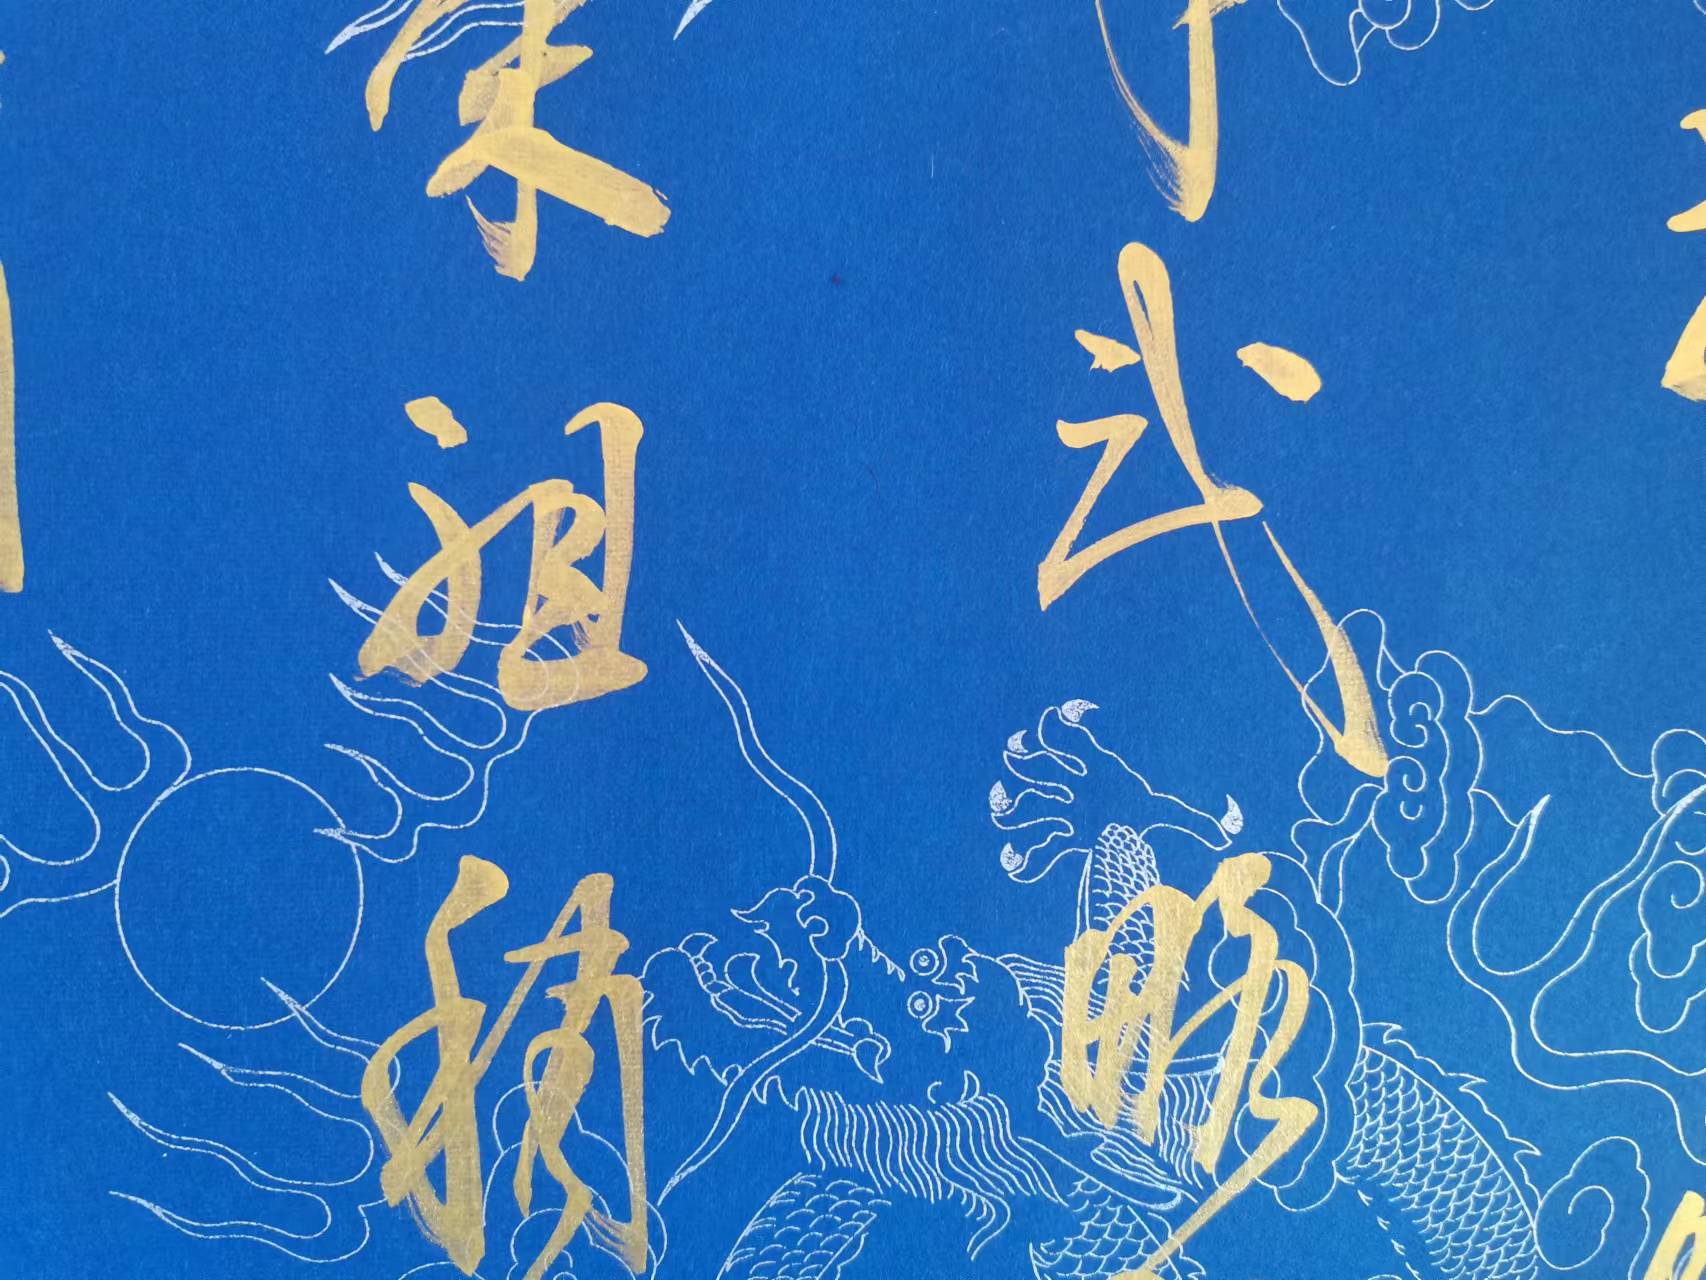 武略
宋祖稍